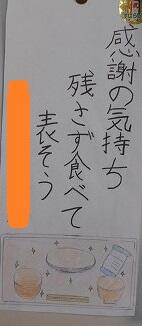 感謝の気持ち
残さず食べて
表そう